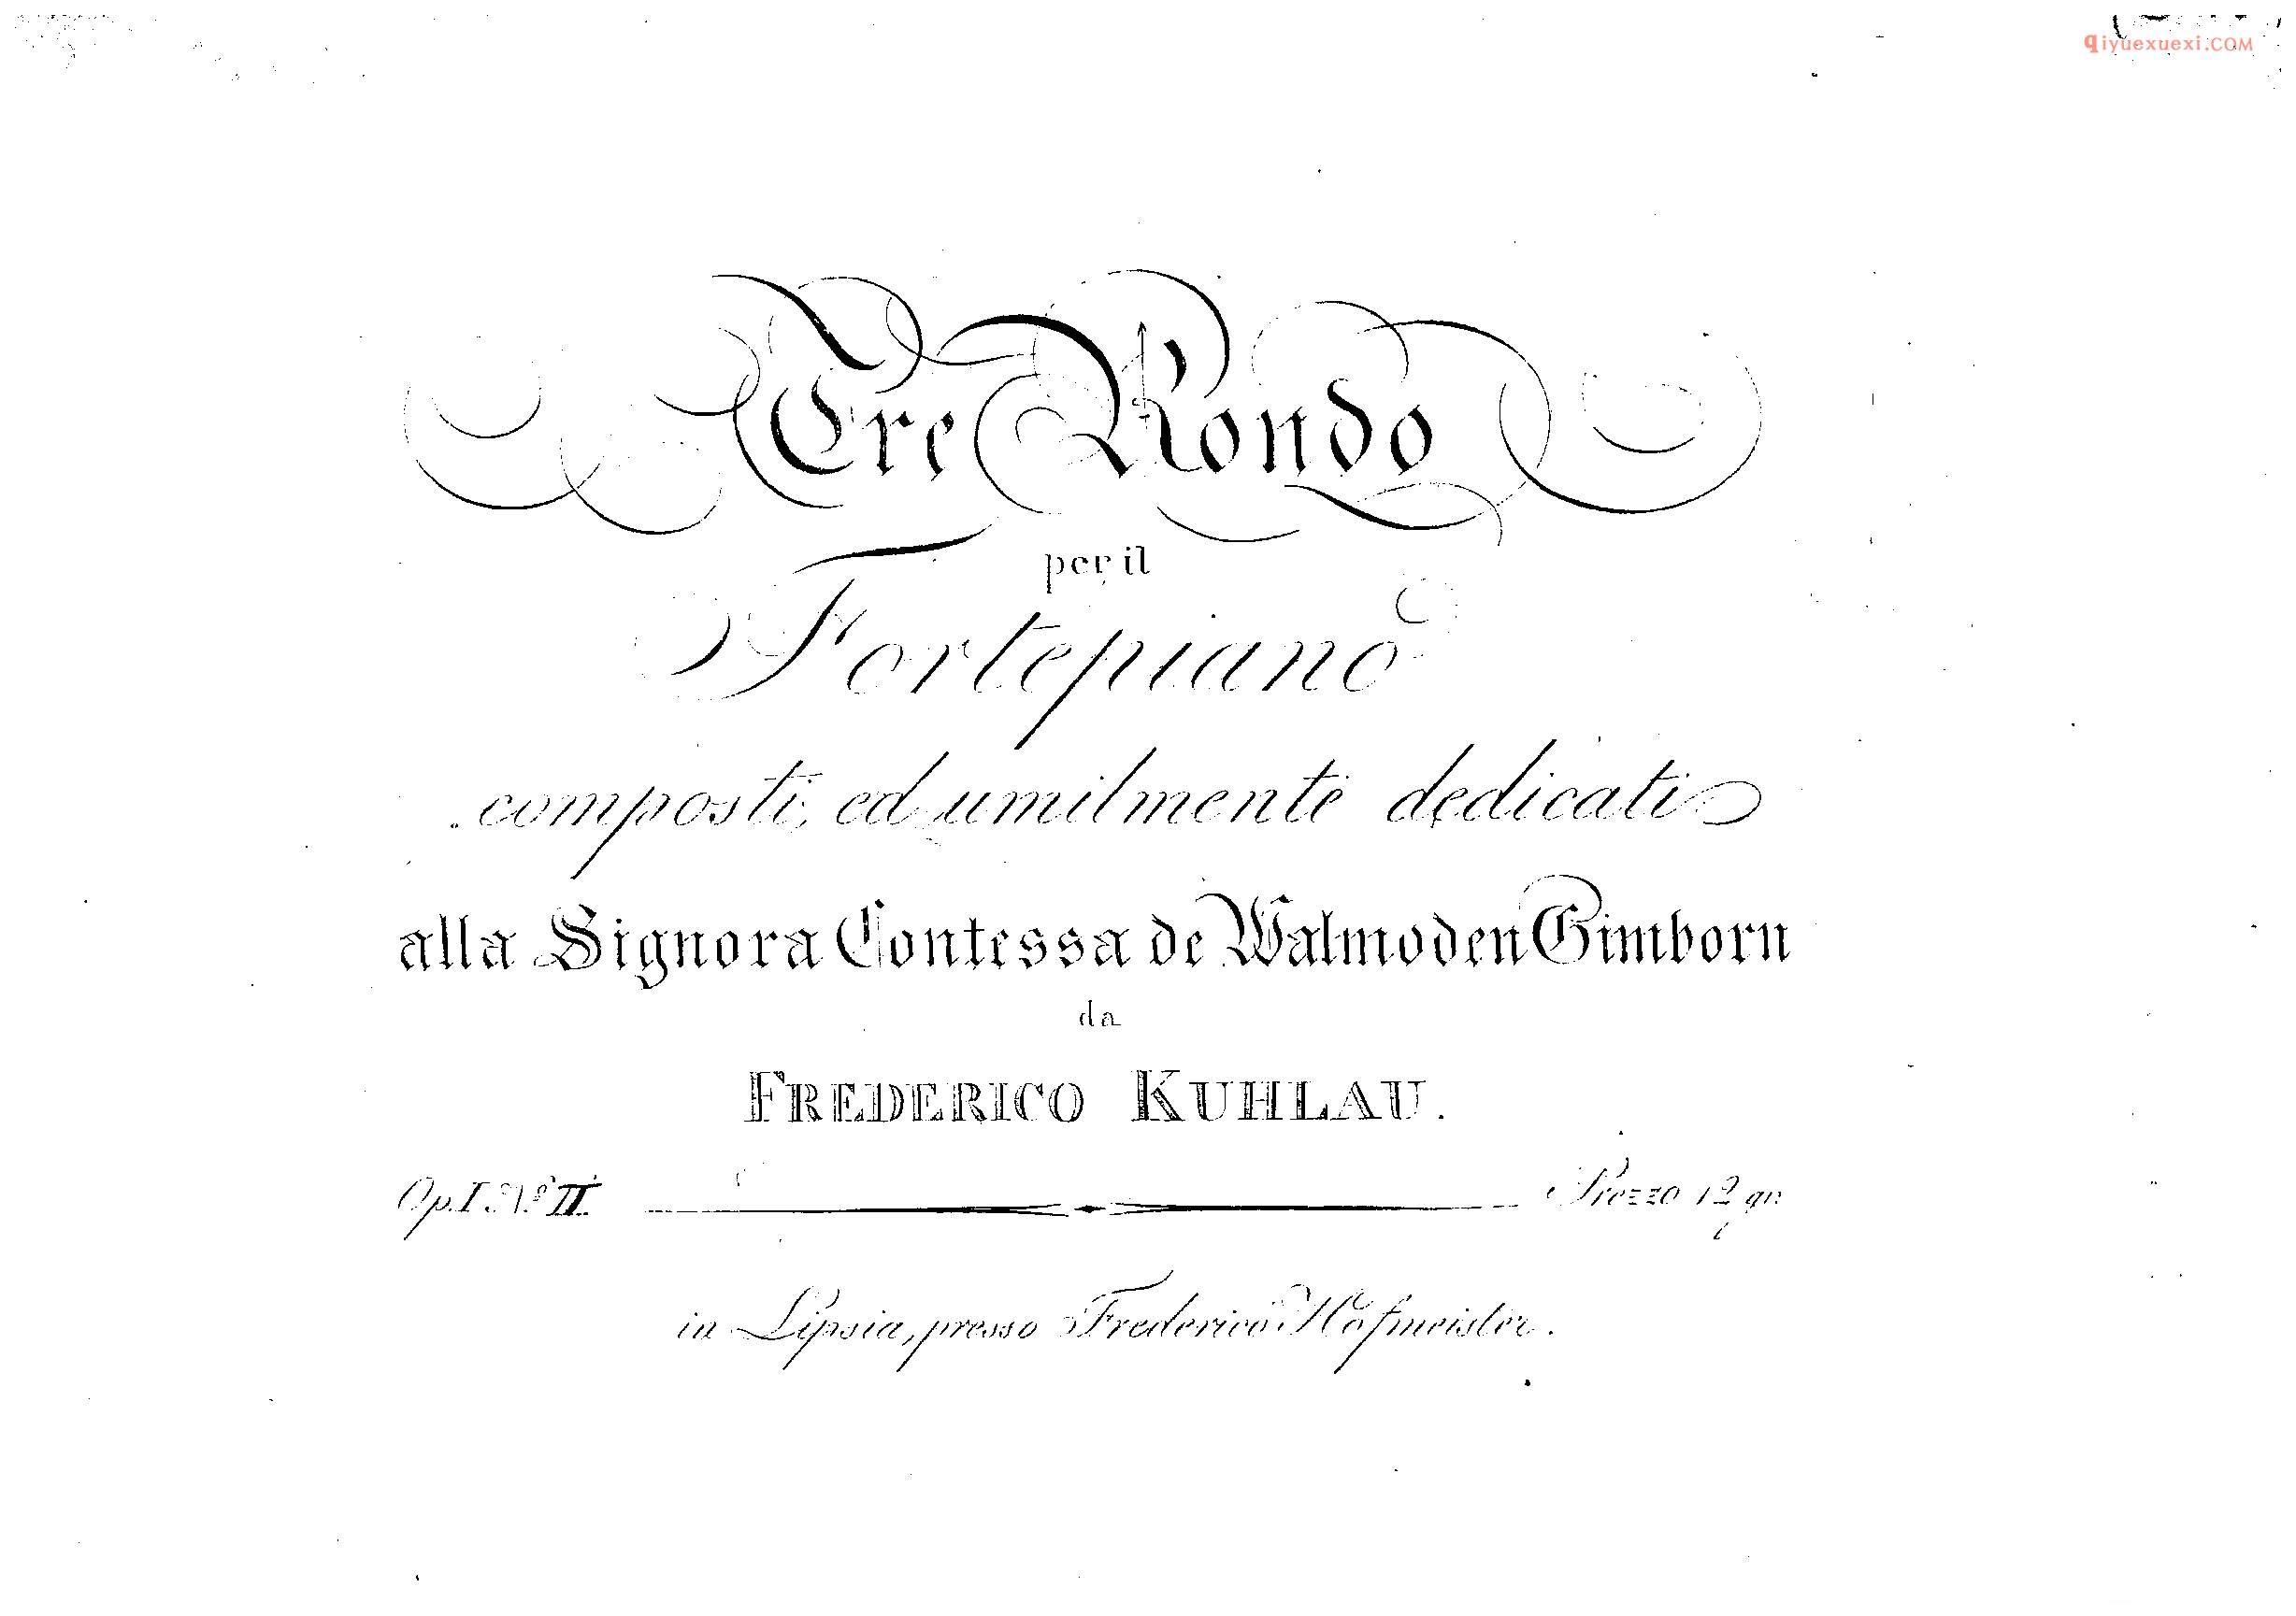 qiyuexuexi.COM
Tre Rondo
per il
Fortepiano
composti, ed umilmente dedicati
alla Signora Contessa de Walmoden Gimborn
da
FREDERICO KUHLAU.
Op. I No II. Prezzo 12 gr.
in Lipsia, presso Frederico Hofmeister.